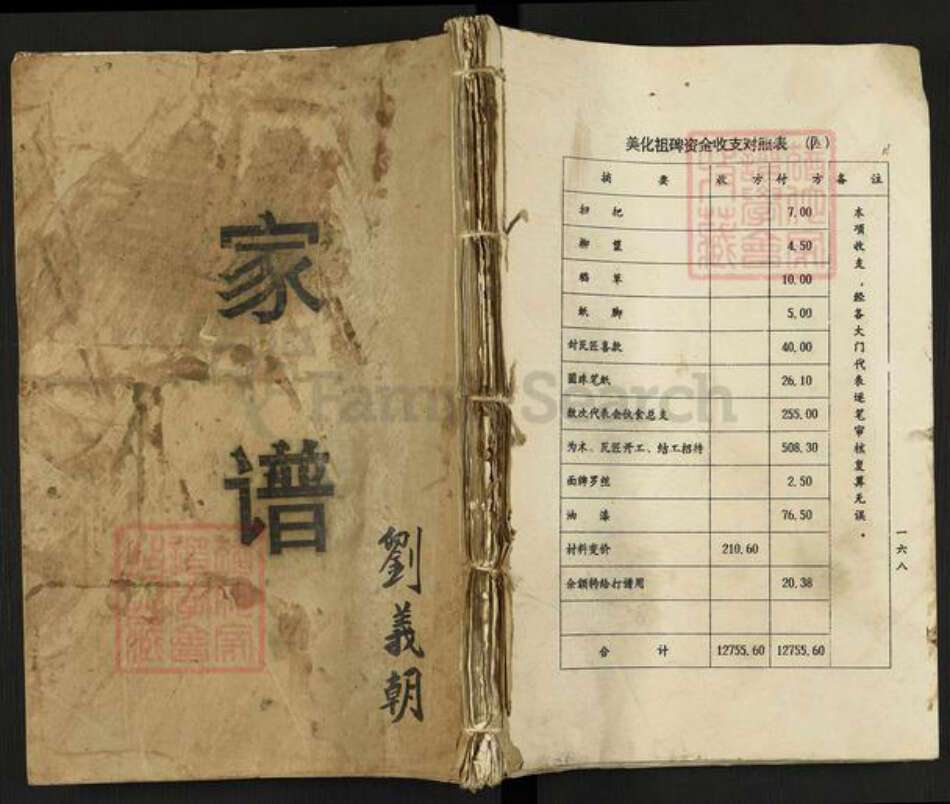 家谱
劉義朝
美化祖碑资金收支对照表
摘 要 收 方 付 方 备 注
扫 把 7.00
4.50
稻 草 10.00
纸 脚 5.00
封瓦匠喜款 40.00
圆珠笔纸 26.10
数次代表会伙食总支 255.00
为木、瓦匠开工、结工招待 508.30
面牌罗丝 2.50
油 漆 76.50
材料变价 210.60
余额转给打谱用 20.38
合 计 12755.60 12755.60
本项收支，经各大门代表逐笔审核复算无误。
一六八
Family Search